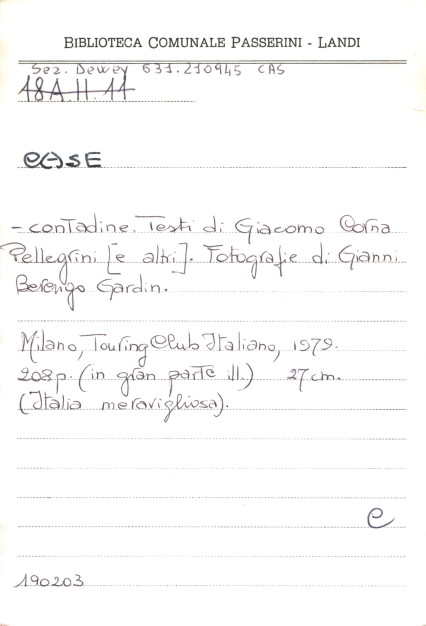 BIBLIOTECA COMUNALE PASSERINI - LANDI
Sez. Dewey 631.210945 CAS
18A.H.11
CASE
- contadine. Testi di Giacomo Corna
Pellegrini [e altri]. Fotografie di Gianni
Berengo Gardin.
Milano, Touring Club Italiano, 1979.
208p. (in gran parte ill.) 27cm.
(Italia meravigliosa).
C
190203